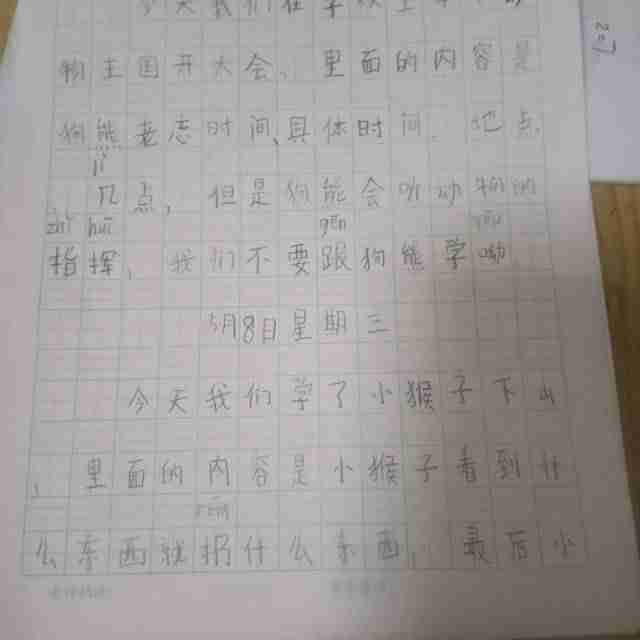 今天我们在学
物王国开大会、里面的内容是
狗熊老忘时间、具体时间、地点
几点,但是狗熊会听动物的
指挥、我们不要跟狗熊学呦
5月8日星期三
今天我们学了小猴子下山
、里面的内容是小猴子看到什
么东西就扔什么东西、最后小